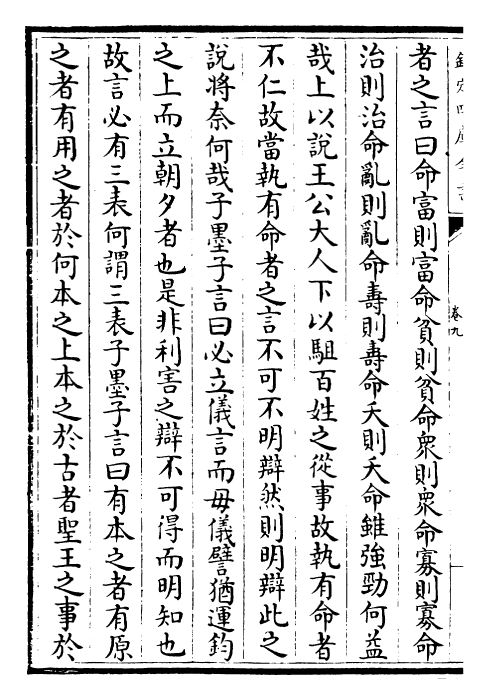 欽定四庫全書
卷九
者之言曰命富則富命貧則貧命衆則衆命寡則寡命
治則治命亂則亂命壽則壽命夭則夭命雖強勁何益
哉上以說王公大人下以駔百姓之從事故執有命者
不仁故當執有命者之言不可不明辯然則明辯此之
說將奈何哉子墨子言曰必立儀言而毋儀譬猶運鈞
之上而立朝夕者也是非利害之辯不可得而明知也
故言必有三表何謂三表子墨子言曰有本之者有原
之者有用之者於何本之上本之於古者聖王之事於